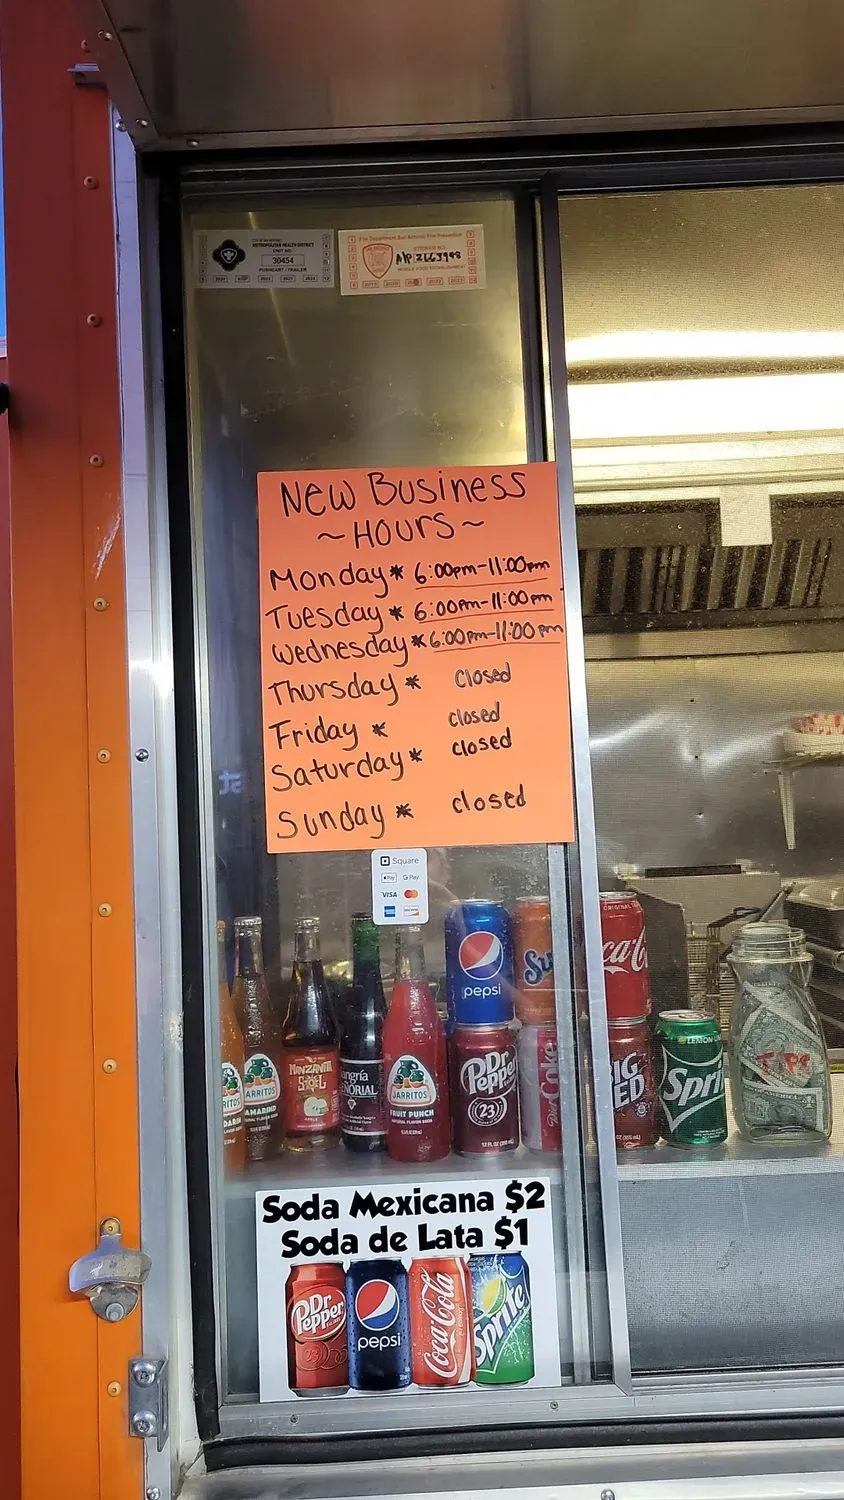 METROPOLITAN HEALTH DISTRICT
UNIT NO.
30454
PUSHCART / TRAILER
Fire Department San Antonio Fire Prevention
STICKER NO.
MOBILE FOOD ESTABLISHMENT
New Business
~Hours~
Monday* 6:00pm-11:00pm
Tuesday* 6:00pm-11:00pm
Wednesday* 6:00pm-11:00pm
Thursday* Closed
Friday* closed
Saturday* closed
Sunday* closed
Square
Pay G Pay
VISA
pepsi
Su
ca-C
ORIGINAL
MANZANITA
SOL
angria
ÑORIAL
RITOS
ARRITOS
AMARIND
JARRITOS
FRUIT PUNCH
Dr
Pepper
23
Diet Coke
IG
ED
LEMON-
Spri
TIPS
Soda Mexicana $2
Soda de Lata $1
Dr
Pepper
23
pepsi
Coca-Cola
Sprite